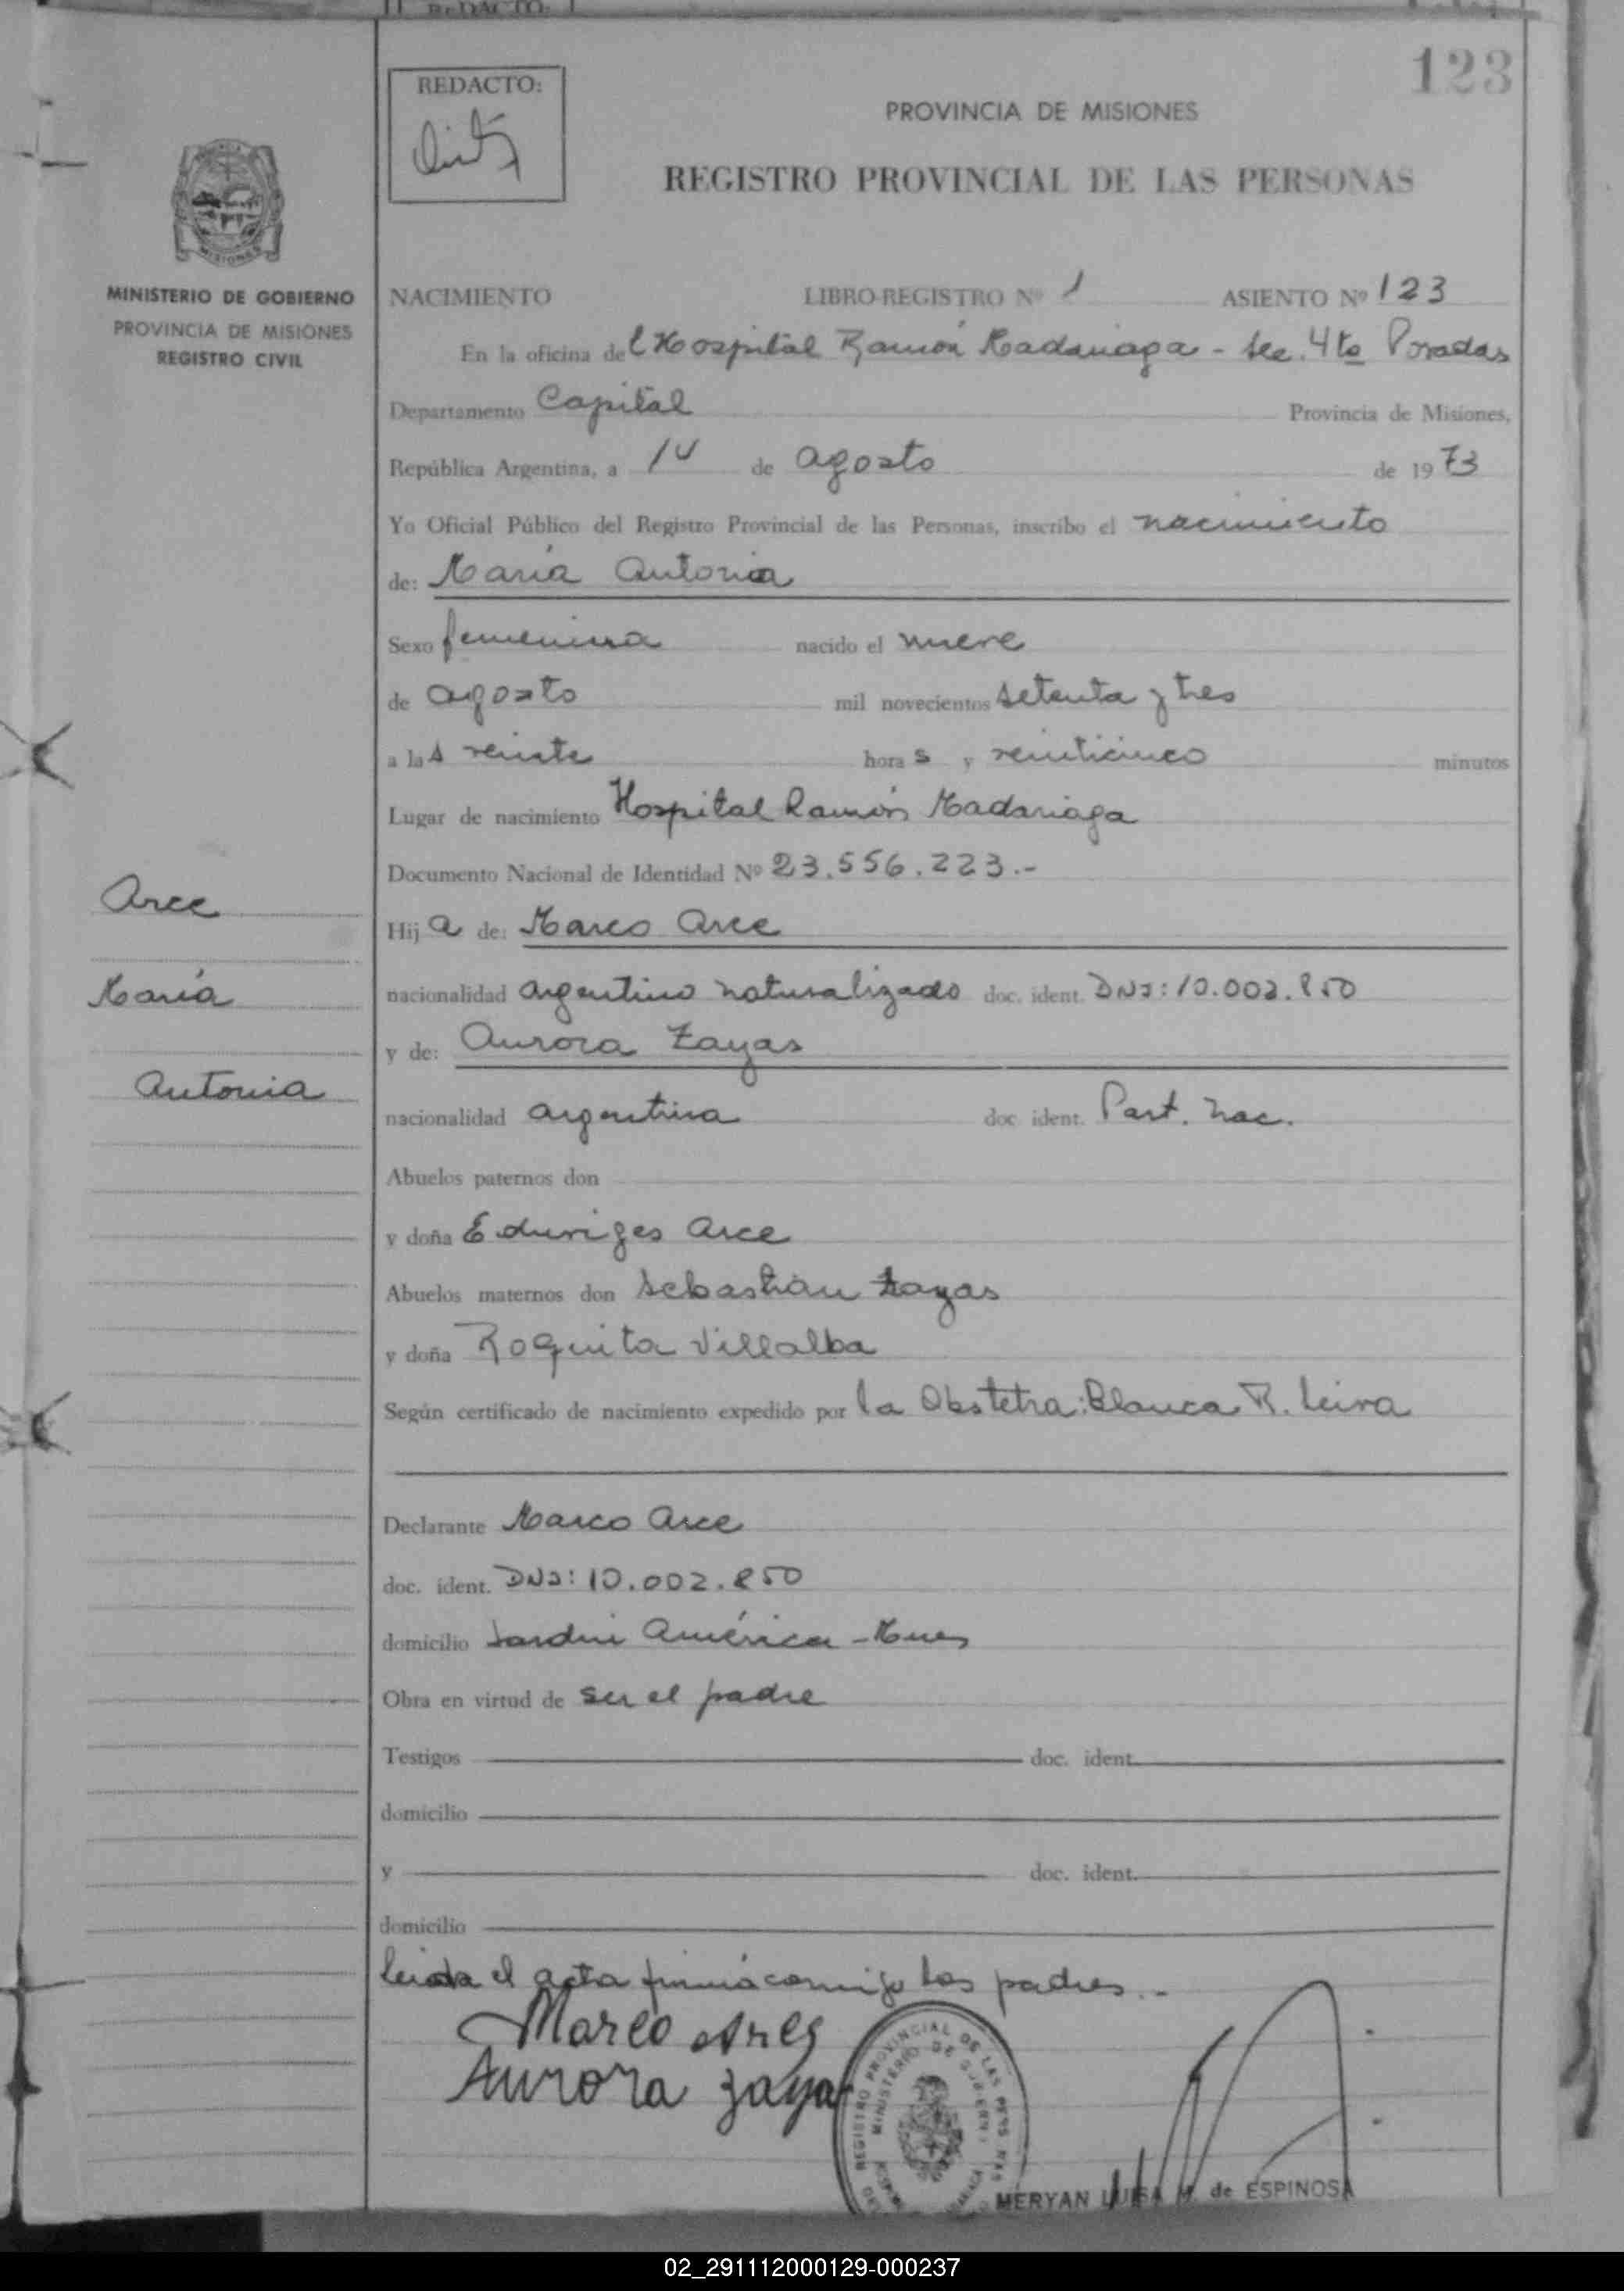 123
REDACTO:
PROVINCIA DE MISIONES
REGISTRO PROVINCIAL DE LAS PERSONAS
MINISTERIO DE GOBIERNO
PROVINCIA DE MISIONES
REGISTRO CIVIL
NACIMIENTO LIBRO-REGISTRO Nº 1 ASIENTO Nº 123
En la oficina del Hospital Ramón Madariaga - Sec. 4ta Posadas
Departamento Capital Provincia de Misiones,
República Argentina, a 14 de agosto de 1973
Yo Oficial Público del Registro Provincial de las Personas, inscribo el nacimiento
de: María Antonia
Sexo femenina nacido el nueve
de agosto mil novecientos setenta y tres
a las veinte horas y veinticinco minutos
Lugar de nacimiento Hospital Ramón Madariaga
Documento Nacional de Identidad Nº 23.556.223.-
Arce
María
Antonia
Hija de: Marco Arce
nacionalidad argentino naturalizado doc. ident. DNI: 10.002.850
y de: Aurora Zayas
nacionalidad argentina doc. ident. Part. nac.
Abuelos paternos don
y doña Eduviges Arce
Abuelos maternos don Sebastián Zayas
y doña Roquita Villalba
Según certificado de nacimiento expedido por la Obstetra: Blanca R. Leiva
Declarante Marco Arce
doc. ident. DNI: 10.002.850
domicilio Jardín América - Mnes
Obra en virtud de ser el padre
Testigos doc. ident.
domicilio
y doc. ident.
domicilio
leida el acta firmá conmigo los padres.-
Marco Arce
Aurora Zaya
REGISTRO PROVINCIAL DE LAS PERSONAS
MINISTERIO DE GOBIERNO
MERYAN LUISA M. de ESPINOSA
02_291112000129-000237